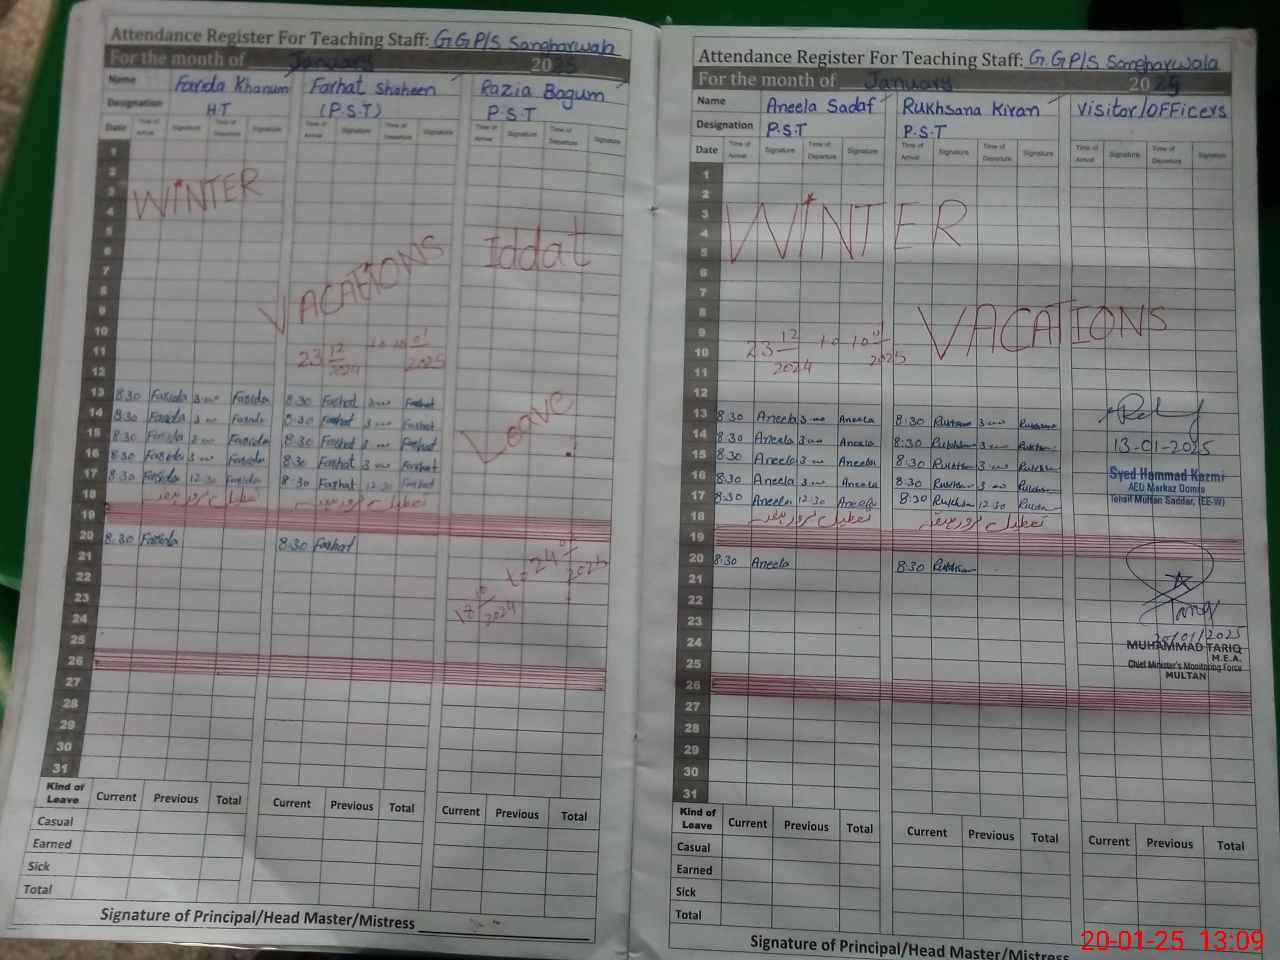 Attendance Register For Teaching Staff: G.G.P/S Sangharwala
For the month of January 2025
Name Farida Khanum Farhat Shaheen Razia Bagum
Designation H.T (P.S.T) P.S.T
Date Time of Arrival Signature Time of Departure Signature Time of Arrival Signature Time of Departure Signature Time of Arrival Signature Time of Departure Signature
1
2
3
4
5
6
7
8
9
10
11
12
WINTER
VACATIONS
23 12/2024 to 10 01/2025
Iddat
Leave
13 8:30 Farida 3:00 Farida 8:30 Farhat 3:00 Farhat
14 8:30 Farida 3:00 Farida 8:30 Farhat 3:00 Farhat
15 8:30 Farida 3:00 Farida 8:30 Farhat 3:00 Farhat
16 8:30 Farida 3:00 Farida 8:30 Farhat 3:00 Farhat
17 8:30 Farida 12:30 Farida 8:30 Farhat 12:30 Farhat
18
19
20 8:30 Farida 8:30 Farhat
21
22
23
24
18 10/2024 to 24 01/2025
25
26
27
28
29
30
31
Kind of Leave Current Previous Total Current Previous Total Current Previous Total
Casual
Earned
Sick
Total
Signature of Principal/Head Master/Mistress
Attendance Register For Teaching Staff: G.G.P/S Sangharwala
For the month of January 2025
Name Aneela Sadaf Rukhsana Kiran Visitor/OFFicers
Designation P.S.T P.S.T
Date Time of Arrival Signature Time of Departure Signature Time of Arrival Signature Time of Departure Signature Time of Arrival Signature Time of Departure Signature
1
2
3
4
5
6
7
8
9
10
11
12
WINTER
VACATIONS
23 12/2024 to 10 01/2025
13 8:30 Aneela 3:00 Aneela 8:30 Rukhsana 3:00 Rukhsana
14 8:30 Aneela 3:00 Aneela 8:30 Rukhsana 3:00 Rukhsana
15 8:30 Aneela 3:00 Aneela 8:30 Rukhsana 3:00 Rukhsana
16 8:30 Aneela 3:00 Aneela 8:30 Rukhsana 3:00 Rukhsana
17 8:30 Aneela 12:30 Aneela 8:30 Rukhsana 12:30 Rukhsana
13-01-2025
Syed Hammad Kazmi
AEO Markaz Domra
Tehsil Multan Saddar, (EE-W)
18
19
20 8:30 Aneela 8:30 Rukhsana
21
22
23
24
25
20/01/2025
MUHAMMAD TARIQ
M.E.A.
Chief Minister's Monitoring Force
MULTAN
26
27
28
29
30
31
Kind of Leave Current Previous Total Current Previous Total Current Previous Total
Casual
Earned
Sick
Total
Signature of Principal/Head Master/Mistress
20-01-25 13:09